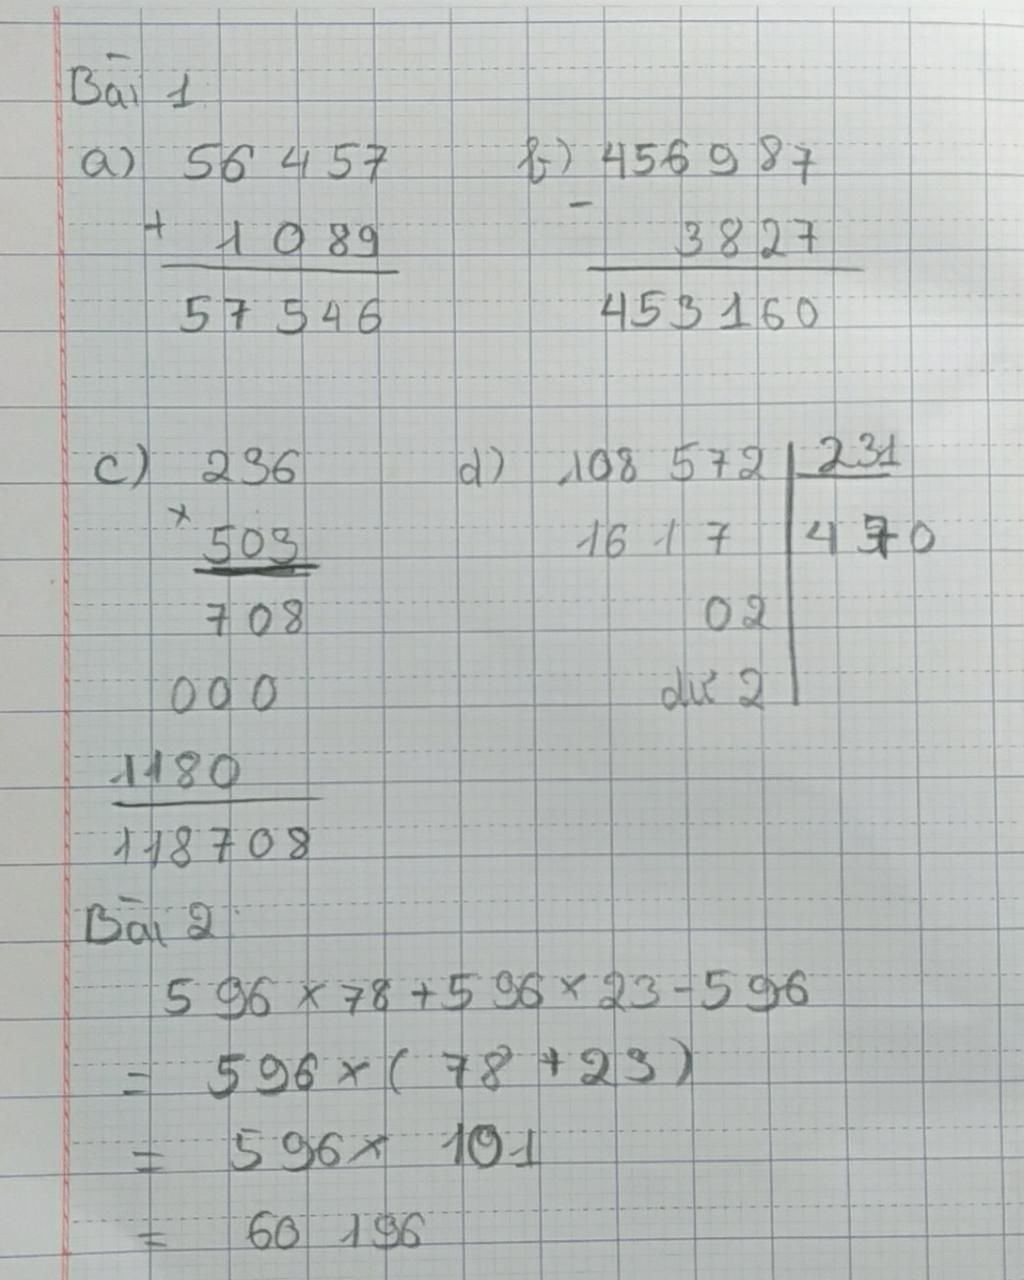 Bài 1
a) 56 457
+ 1 089
57 546
b) 456 987
- 3827
453160
c) 236
× 503
708
000
1180
118708
d) 108 572 | 231
1617 | 470
02
dư 2
Bài 2
596 × 78 + 596 × 23 - 596
= 596 × ( 78 + 23 )
= 596 × 101
= 60 196